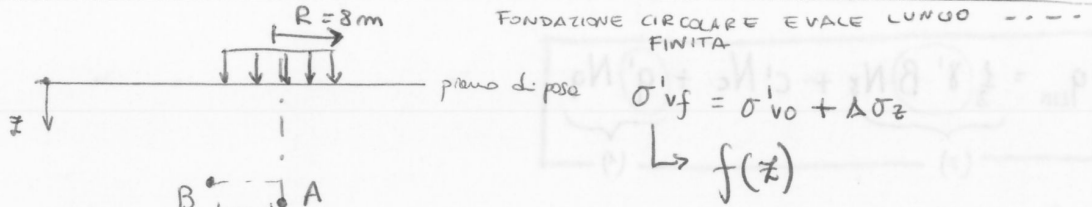 R = 8 m
FONDAZIONE CIRCOLARE E VALE LUNGO -----
FINITA
piano di posa
σ'vf = σ'vo + Δσz
z
f(z)
B
A